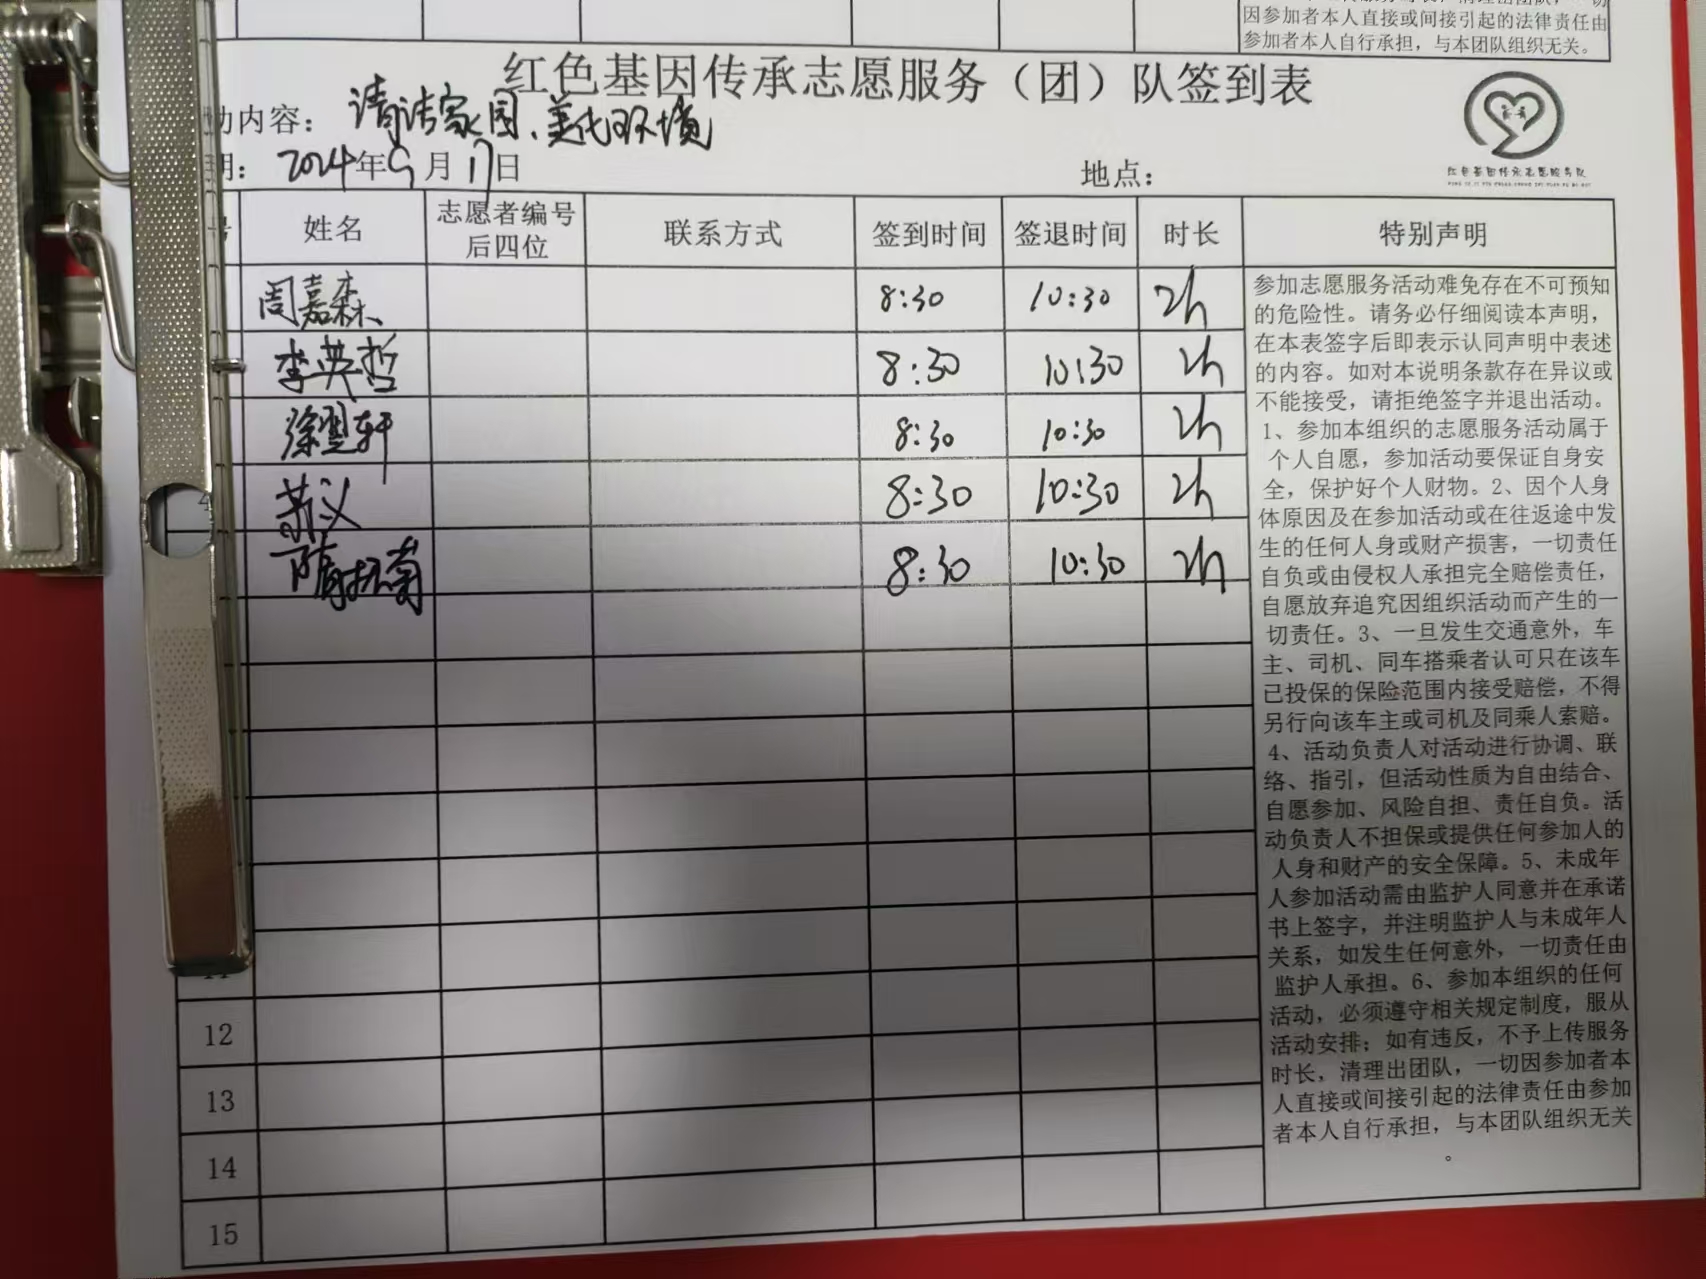 因参加者本人直接或间接引起的法律责任由
参加者本人自行承担，与本团队组织无关。
红色基因传承志愿服务（团）队签到表
动内容：清洁家园、美化环境
期：2024年9月17日
地点：
红色基因传承志愿服务队
号 姓名 志愿者编号后四位 联系方式 签到时间 签退时间 时长 特别声明
周嘉森 8:30 10:30 2h
李英哲 8:30 10:30 2h
徐翌轩 8:30 10:30 2h
4 苏义 8:30 10:30 2h
8:30 10:30 2h
11
12
13
14
15
参加志愿服务活动难免存在不可预知
的危险性。请务必仔细阅读本声明，
在本表签字后即表示认同声明中表述
的内容。如对本说明条款存在异议或
不能接受，请拒绝签字并退出活动。
1、参加本组织的志愿服务活动属于
个人自愿，参加活动要保证自身安
全，保护好个人财物。2、因个人身
体原因及在参加活动或在往返途中发
生的任何人身或财产损害，一切责任
自负或由侵权人承担完全赔偿责任，
自愿放弃追究因组织活动而产生的一
切责任。3、一旦发生交通意外，车
主、司机、同车搭乘者认可只在该车
已投保的保险范围内接受赔偿，不得
另行向该车主或司机及同乘人索赔。
4、活动负责人对活动进行协调、联
络、指引，但活动性质为自由结合、
自愿参加、风险自担、责任自负。活
动负责人不担保或提供任何参加人的
人身和财产的安全保障。5、未成年
人参加活动需由监护人同意并在承诺
书上签字，并注明监护人与未成年人
关系，如发生任何意外，一切责任由
监护人承担。6、参加本组织的任何
活动，必须遵守相关规定制度，服从
活动安排；如有违反，不予上传服务
时长，清理出团队，一切因参加者本
人直接或间接引起的法律责任由参加
者本人自行承担，与本团队组织无关
。